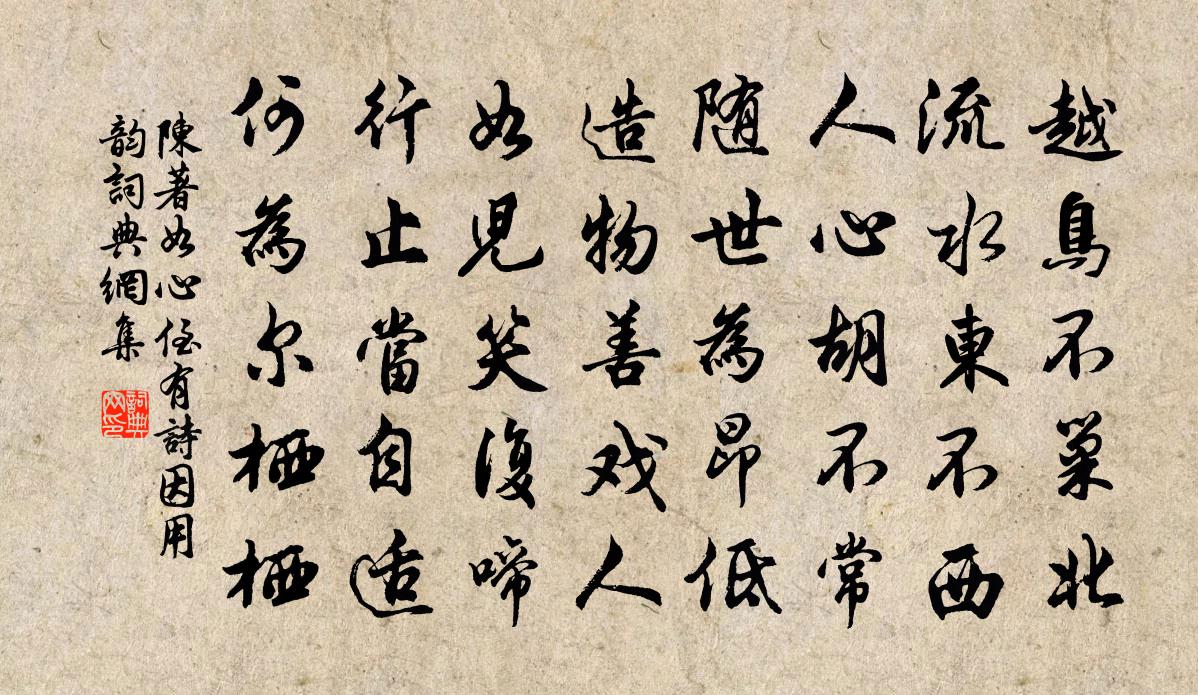 越鳥不巢北
流水東不西
人心胡不常
随世為昂低
造物善戏人
如兒笑復啼
行止當自适
何為尔栖栖
陳著如心侄有詩因用
韵詞典網集
詞典
网印